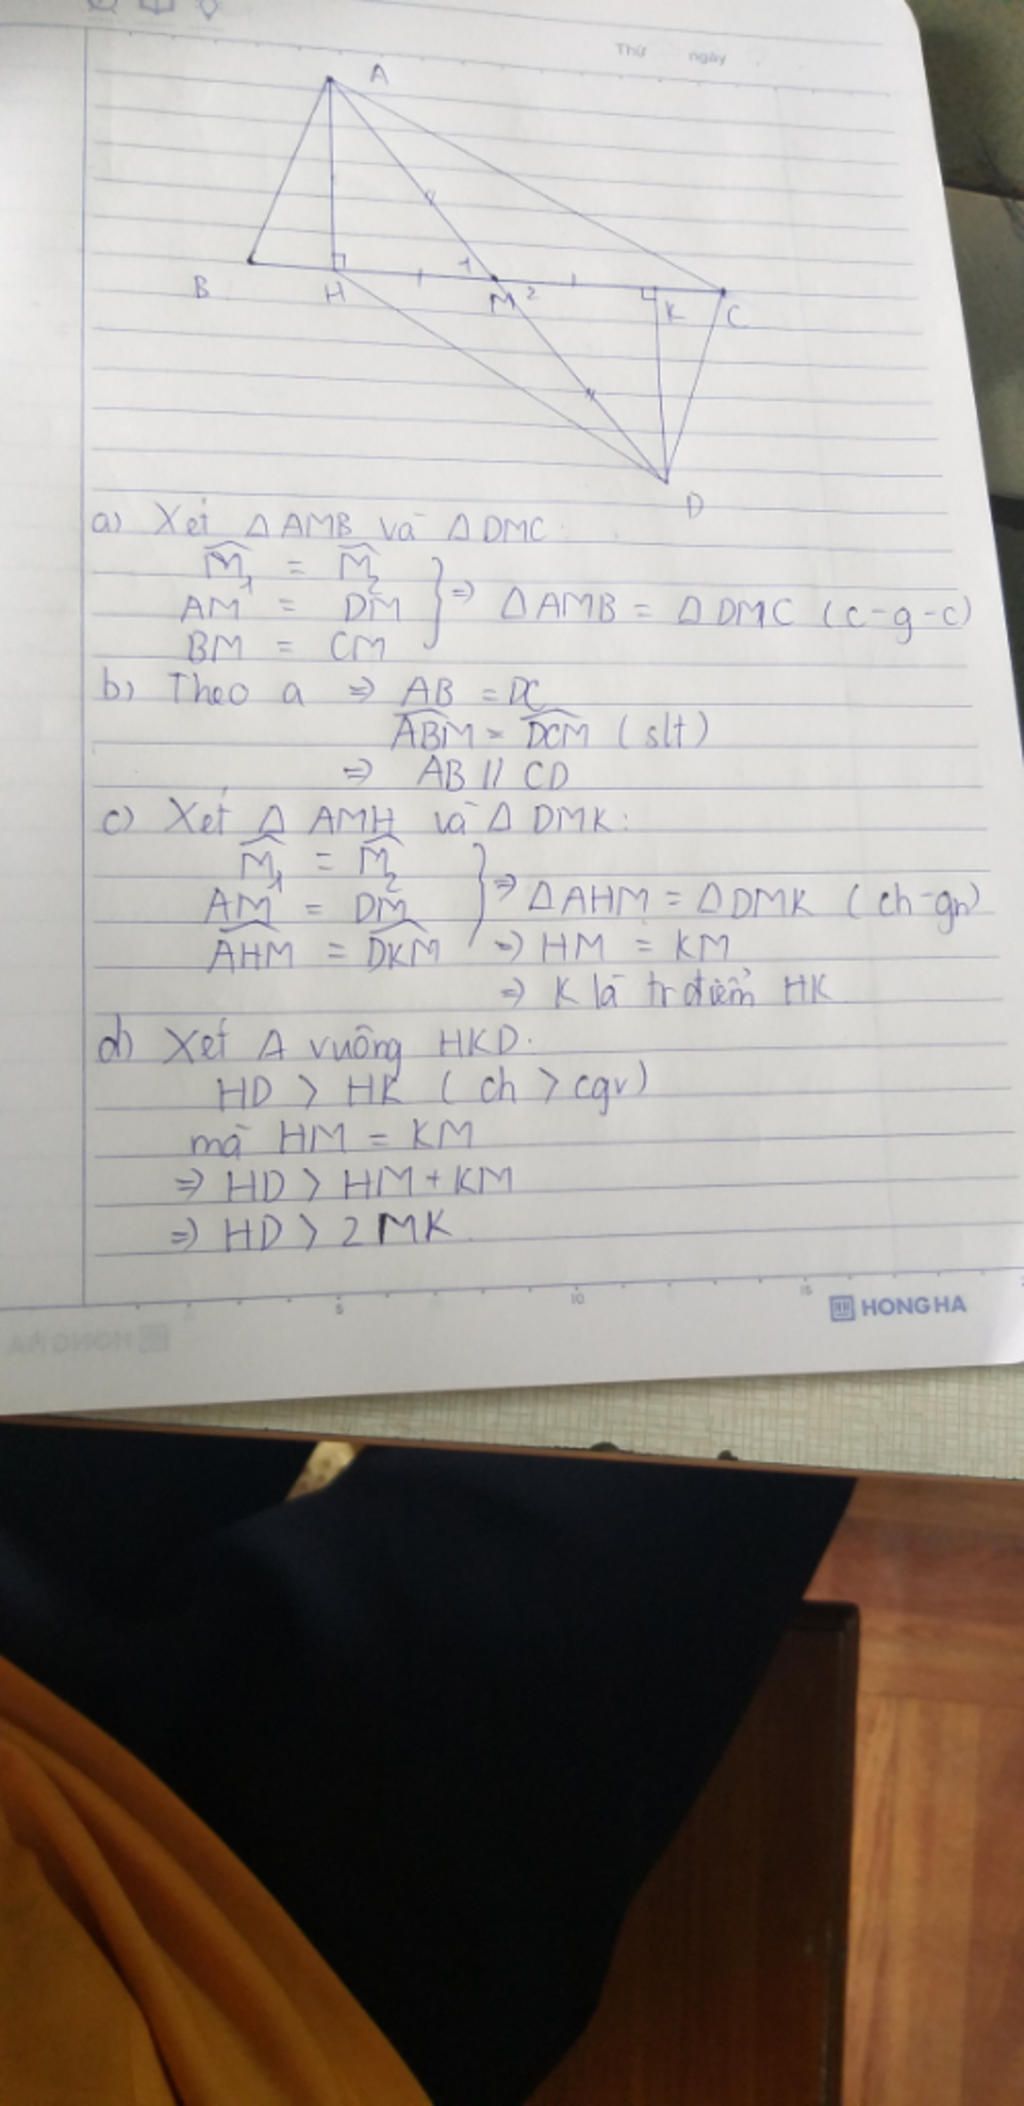 Thứ ngày
A
B H 1 M 2 K C
D
a) Xét Δ AMB và Δ DMC:
M̂₁ = M̂₂
AM = DM } => Δ AMB = Δ DMC (c-g-c)
BM = CM
b) Theo a => AB = DC
ABM = DCM (slt)
=> AB // CD
c) Xét Δ AMH và Δ DMK:
M̂₁ = M̂₂
AM = DM } => Δ AHM = Δ DMK (ch-gn)
AHM = DKM => HM = KM
=> K là tr điểm HK
d) Xét Δ vuông HKD.
HD > HK (ch > cgv)
mà HM = KM
=> HD > HM + KM
=> HD > 2 MK
5 10 15
HONG HA